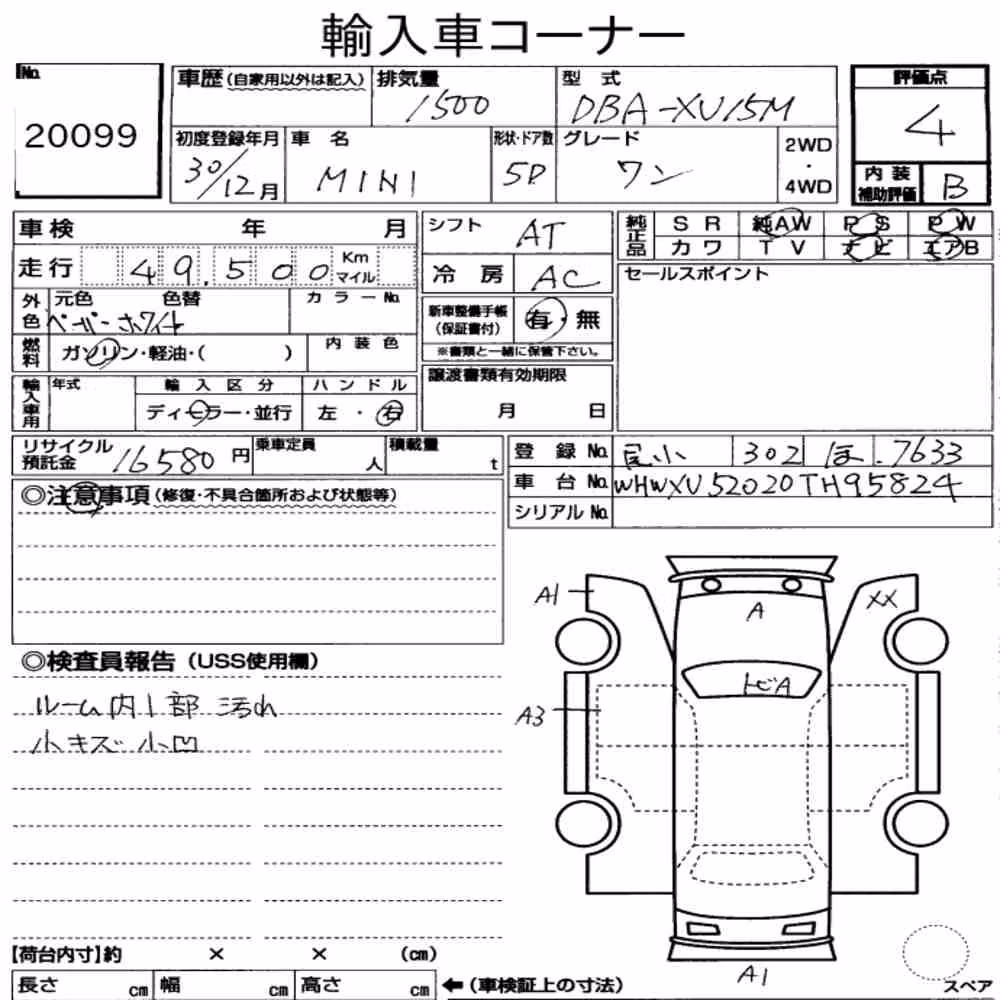 輸入車コーナー
No.
20099
車歴（自家用以外は記入）
排気量
1500
型 式
DBA-XU15M
評価点
4
内装補助評価
B
初度登録年月
30/12月
車 名
MINI
形状・ドア数
5D
グレード
ワン
2WD・4WD
車検 年 月
走行 49.500 Km マイル
シフト
AT
冷 房
AC
純正品
SR 純AW PS PW
カワ TV ナビ エアB
セールスポイント
外色
元色 色替
カラーNo.
ペーパーホワイト
新車整備手帳（保証書付） 有・無
※書類と一緒に保管下さい。
燃料
ガソリン・軽油・( )
内装色
輸入車用
年式
輸入区分
ディーラー・並行
ハンドル
左・右
譲渡書類有効期限
月 日
リサイクル預託金 16580円
乗車定員 人
積載量 t
登 録 No. 尾小 302 ほ .7633
車 台 No. WMWXU52020TH95824
シリアル No.
◎注意事項（修復・不具合箇所および状態等）
◎検査員報告（USS使用欄）
ルーム内1部 汚れ
小キズ 小凹
A1
XX
A
トビA
A3
A1
【荷台内寸】約 × × (cm)
長さ cm 幅 cm 高さ cm ←（車検証上の寸法）
スペア